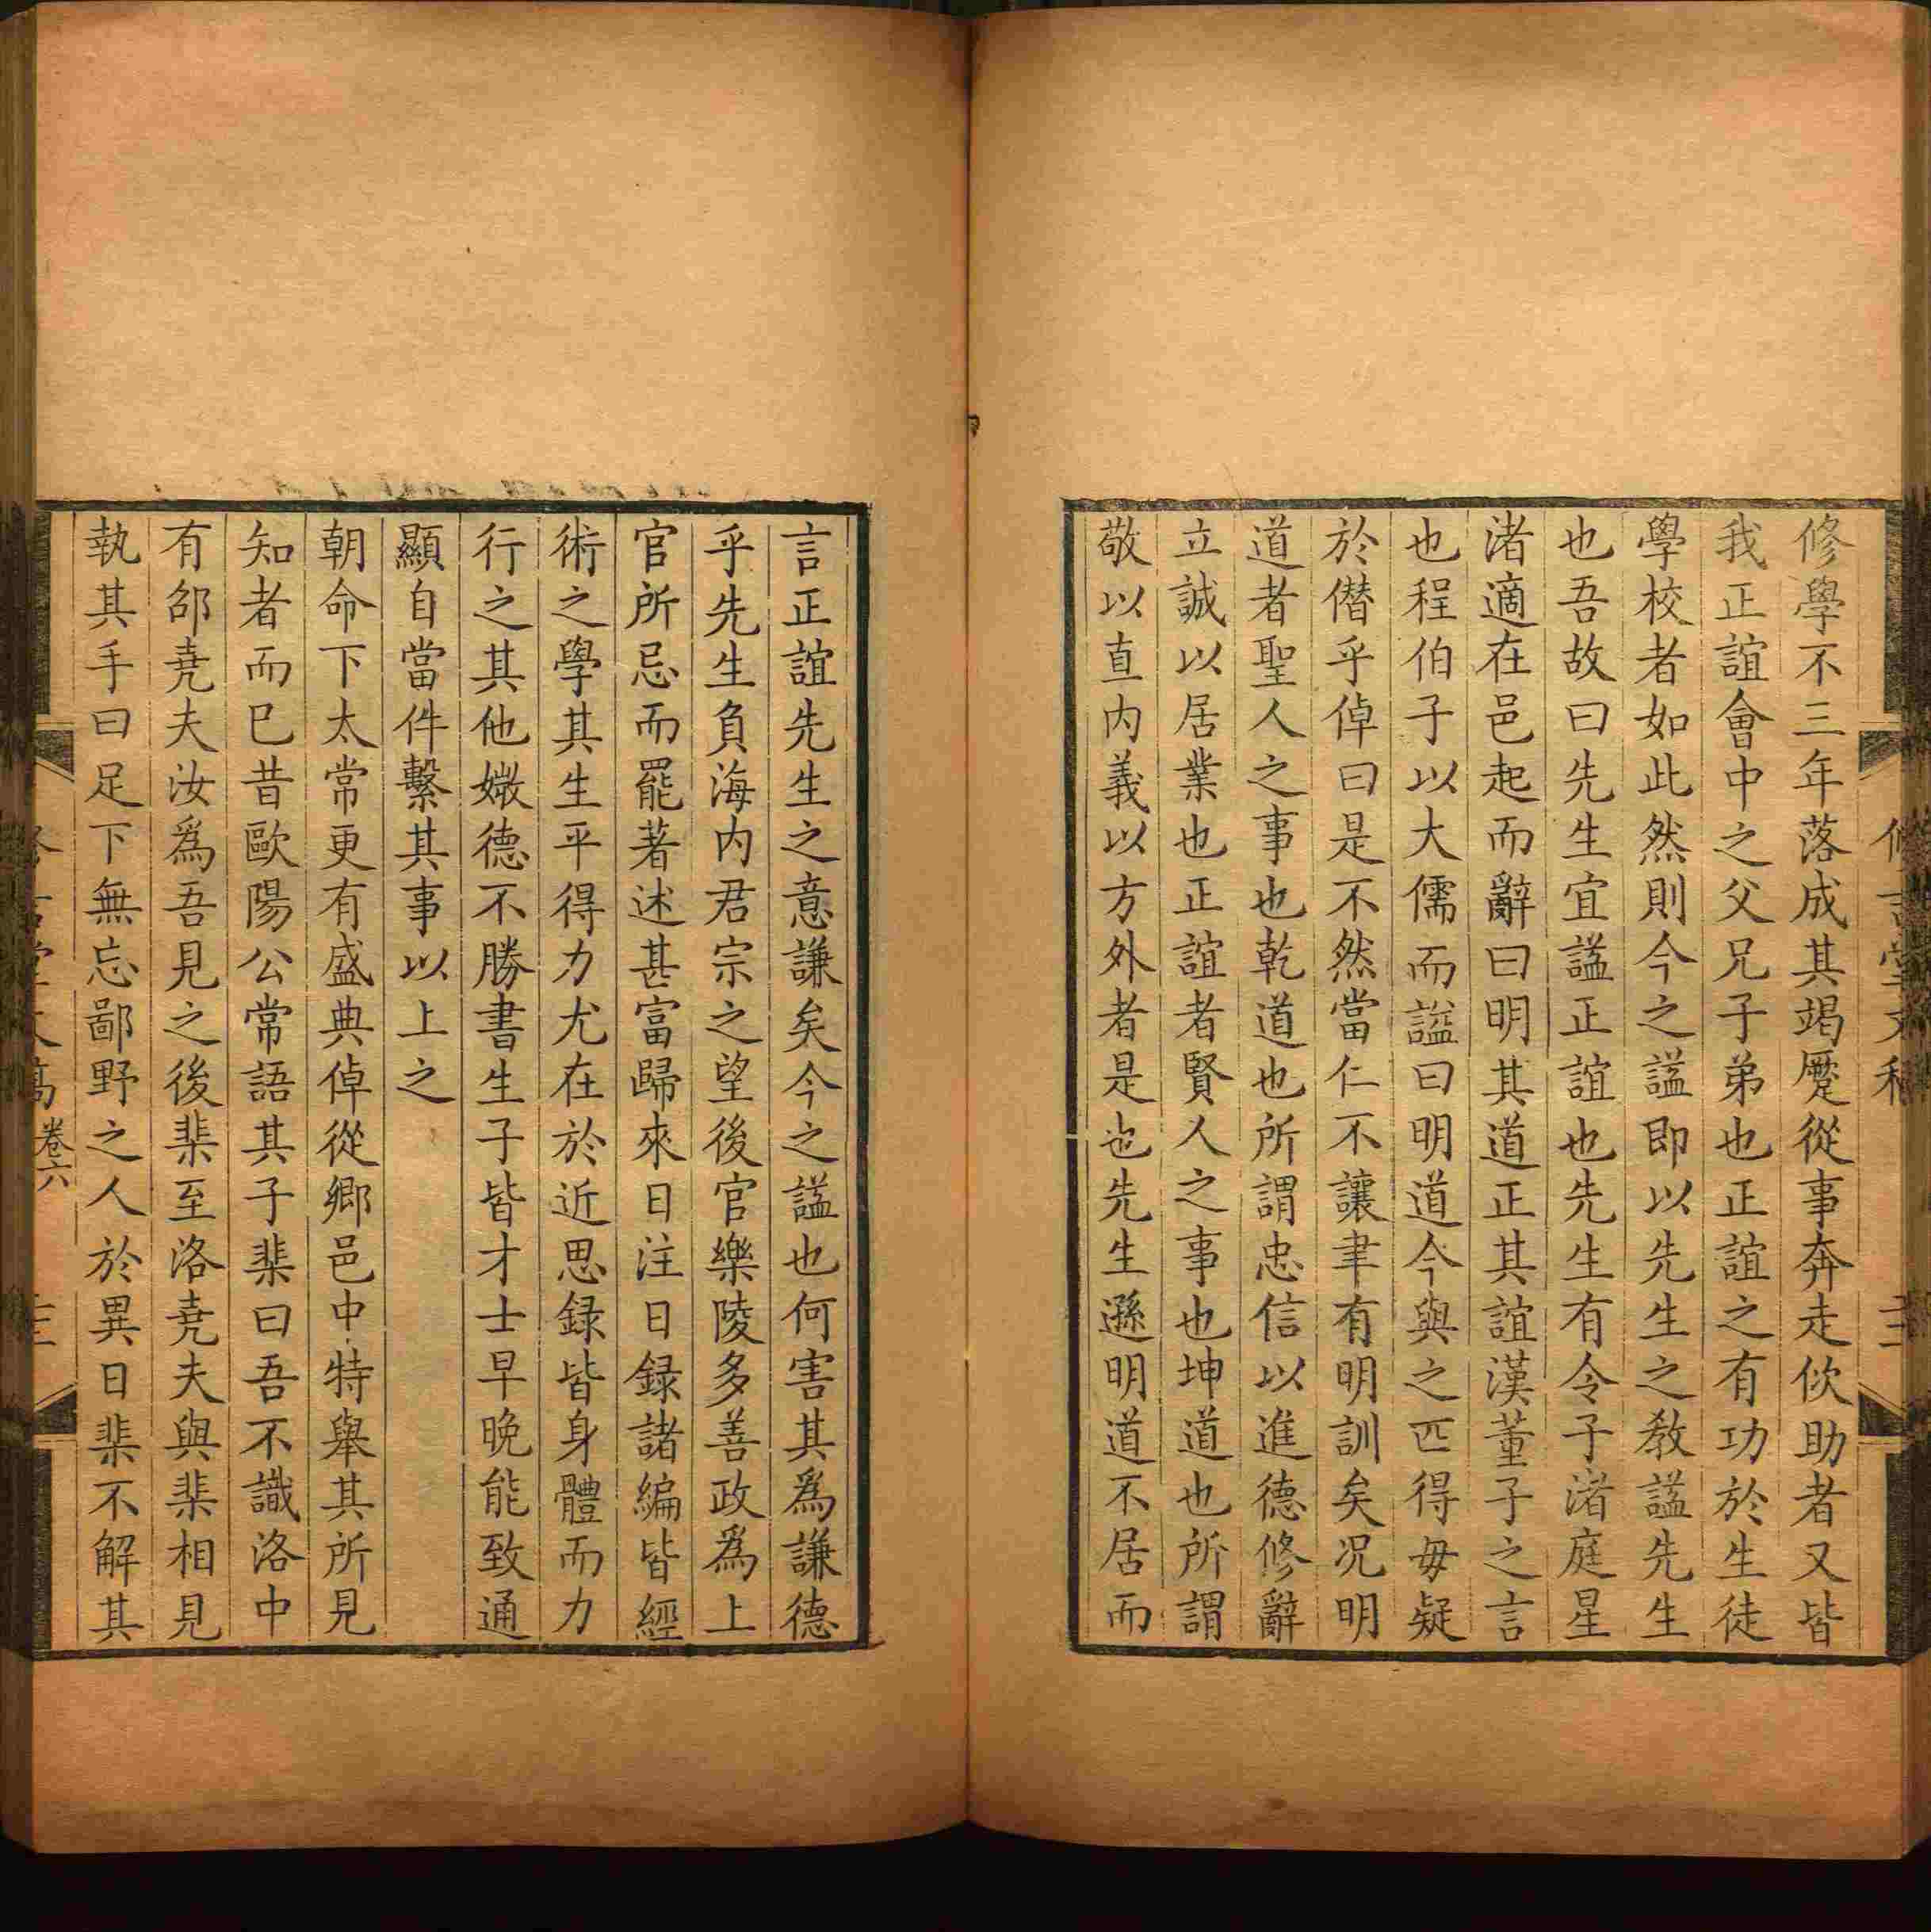 修學不三年落成其竭蹷從事奔走佽助者又皆
我正誼會中之父兄子弟也正誼之有功於生徒
學校者如此然則今之謚即以先生之教謚先生
也吾故曰先生宜謚正誼也先生有令子渚庭星
渚適在邑起而辭曰明其道正其誼漢董子之言
也程伯子以大儒而謚曰明道今與之匹得毋疑
於僣乎倬曰是不然當仁不讓聿有明訓矣况明
道者聖人之事也乾道也所謂忠信以進德修辭
立誠以居業也正誼者賢人之事也坤道也所謂
敬以直内義以方外者是也先生遜明道不居而
言正誼先生之意謙矣今之謚也何害其爲謙德
乎先生負海内君宗之望後官樂陵多善政爲上
官所忌而罷著述甚富歸來日注日録諸編皆經
術之學其生平得力尤在於近思録皆身體而力
行之其他媺德不勝書生子皆才士早晚能致通
顯自當件繫其事以上之
朝命下太常更有盛典倬從鄉邑中特舉其所見
知者而已昔歐陽公常語其子棐曰吾不識洛中
有邵堯夫汝爲吾見之後棐至洛堯夫與棐相見
執其手曰足下無忘鄙野之人於異日棐不解其
卷六